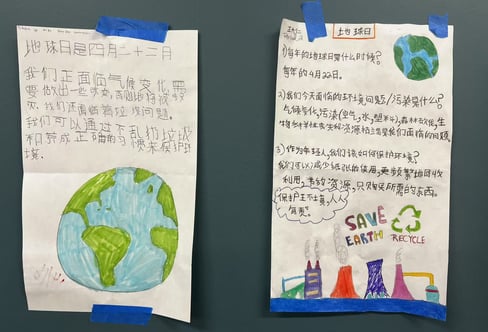 地球日是四月二十二月
我们正面临气候变化,需
要做出一些改变,
我们还面临着垃圾问题。
我们可以通过不乱扔垃圾
和养成正确的习惯来保护环
境.
地球日
1)每年的地球日是什么时候?
每年的4月22日。
2)我们今天面临的环境问题/污染是什么?
气候变化,污染(空气,水,塑料),森林砍伐,生
物多样性丧失和资源枯竭是我们面临的问题.
3)作为年轻人,我们该如何保护环境?
我们可以减少纸张的使用,更频繁地回收
利用,节约资源,只购买所需的东西。
保护环境,人人
有责。
SAVE
EARTH
RECYCLE